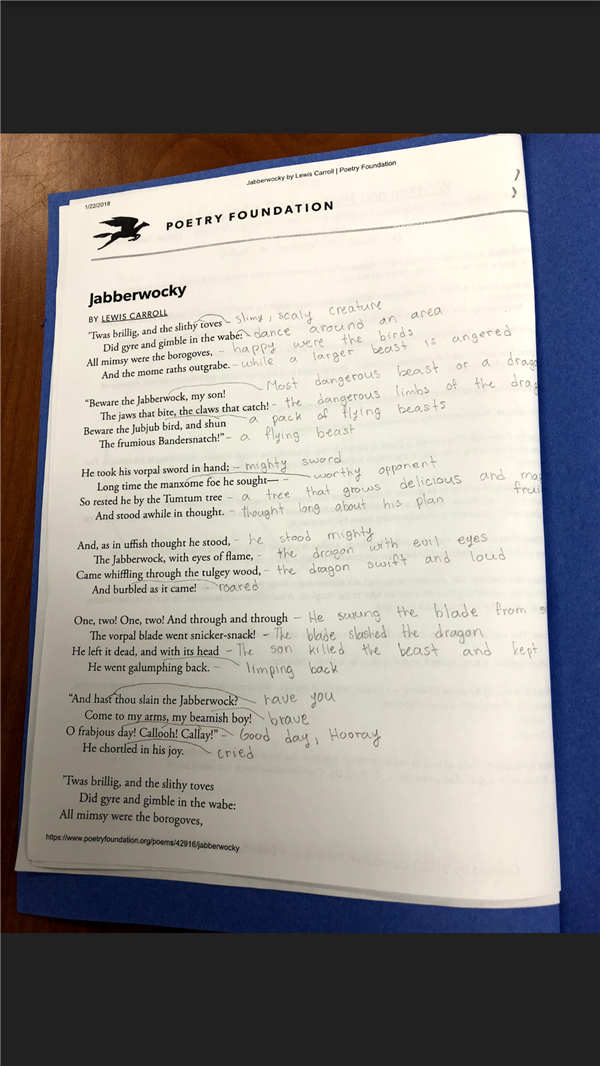 Jabberwocky by Lewis Carroll | Poetry Foundation
1/22/2018
POETRY FOUNDATION
Jabberwocky
BY LEWIS CARROLL
'Twas brillig, and the slithy toves - slimy, scaly creature
Did gyre and gimble in the wabe: - dance around an area
All mimsy were the borogoves, - happy were the birds
And the mome raths outgrabe. - while a larger beast is angered
"Beware the Jabberwock, my son! - Most dangerous beast or a drag
The jaws that bite, the claws that catch! - the dangerous limbs of the drag
Beware the Jubjub bird, and shun a pack of flying beasts
The frumious Bandersnatch!" - a flying beast
He took his vorpal sword in hand; - mighty sword
Long time the manxome foe he sought— - worthy opponent
So rested he by the Tumtum tree - a tree that grows delicious and ma
fruit
And stood awhile in thought. - thought long about his plan
And, as in uffish thought he stood, - he stood mighty
The Jabberwock, with eyes of flame, - the dragon with evil eyes
Came whiffling through the tulgey wood, - the dragon swift and loud
And burbled as it came! - roared
One, two! One, two! And through and through - He swung the blade from
The vorpal blade went snicker-snack! - The blade slashed the dragon
He left it dead, and with its head - The son killed the beast and kept
He went galumphing back. - limping back
"And hast thou slain the Jabberwock? - have you
Come to my arms, my beamish boy! - brave
O frabjous day! Callooh! Callay!" - Good day, Hooray
He chortled in his joy. - cried
'Twas brillig, and the slithy toves
Did gyre and gimble in the wabe:
All mimsy were the borogoves,
https://www.poetryfoundation.org/poems/42916/jabberwocky